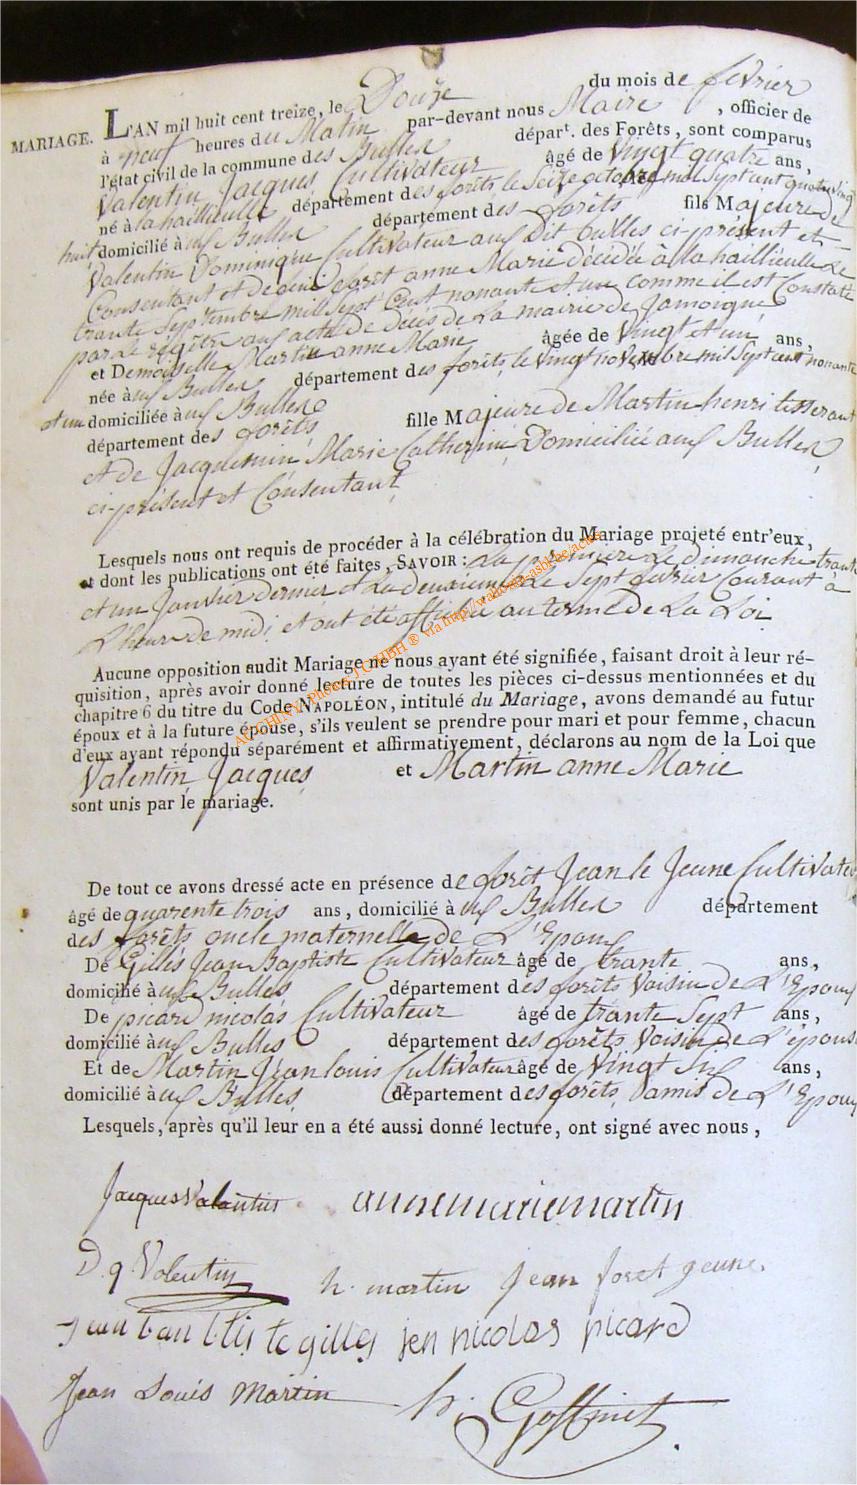 MARIAGE. L'AN mil huit cent treize, le Douze du mois de fevrier
à neuf heures du Matin par-devant nous Maire , officier de
l'état civil de la commune des Bulles départ. des Forêts, sont comparus
Valentin Jacques Cultivateur âgé de Vingt quatre ans,
né à la hailleulle département des forêts le Seize octobre mil Sept cent quatre Ving
huit domicilié à aux Bulles département des forêts fils Majeure de
Valentin Dominique Cultivateur aux Dit Bulles ci-présent et
Consentant et de foret anne Marie Décédée à la hailleulle Le
trante Septembre mil Sept Cent nonante et un comme il est Constaté
par Le régitre aux acte De décès de La mairie de Jamoigne
et Demoiselle Martin anne Marie âgée de Vingt et un ans,
née à aux Bulles département des forêts, le Vingt novembre mil Sept cent nonante
et un domiciliée à aux Bulles
département des forêts fille Majeure de Martin henri tisserant
et de Jacquemin Marie Catherine Domiciliée aux Bulles
ci-présent et Consentant
Lesquels nous ont requis de procéder à la célébration du Mariage projeté entr'eux,
et dont les publications ont été faites, SAVOIR : La première Le Dimanche trante
et un Janvier dernier et La deuxieme Le Sept fevrier Courant à
L'heure de midi et ont été affichée au terme de La Loi
Aucune opposition audit Mariage ne nous ayant été signifiée, faisant droit à leur ré-
quisition, après avoir donné lecture de toutes les pièces ci-dessus mentionnées et du
chapitre 6 du titre du Code NAPOLÉON, intitulé du Mariage, avons demandé au futur
époux et à la future épouse, s'ils veulent se prendre pour mari et pour femme, chacun
d'eux ayant répondu séparément et affirmativement, déclarons au nom de la Loi que
Valentin Jacques et Martin anne Marie
sont unis par le mariage.
De tout ce avons dressé acte en présence de forêt Jean le Jeune Cultivateu
âgé de quarente trois ans, domicilié à aux Bulles département
des forêts oncle maternelle de L'Epoux
De Gilles Jean Baptiste Cultivateur âgé de trante ans,
domicilié à aux Bulles département des forêts Voisin de L'Epoux
De picard nicolas Cultivateur âgé de trante Sept ans,
domicilié à aux Bulles département des forêts Voisin de L'épouse
Et de Martin Jean louis Cultivateur âgé de Vingt Six ans,
domicilié à aux Bulles département des forêts, amis de L'Epoux
Lesquels, après qu'il leur en a été aussi donné lecture, ont signé avec nous,
Jacques Valentin annemariemartin
D. q. Valentin h. martin Jean foret jeune
Jean baubtiste gilles jen nicolas picard
Jean Louis Martin h. Goffinet